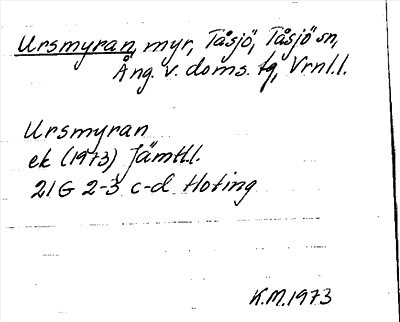 Ursmyran, myr, Tåsjö, Tåsjö sn,
Ång. v. doms. tg, Vrnl.l.
Ursmyran
ek (1973) Jämtl.l.
21G 2-3 c-d Hoting
K.M.1973